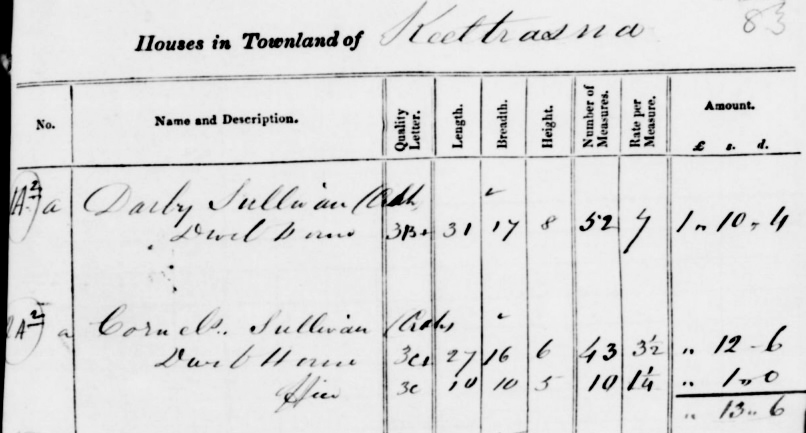 83
Houses in Townland of Keettrasna
No. Name and Description. Quality Letter. Length. Breadth. Height. Number of Measures. Rate per Measure. Amount. £ s. d.
1A2 a Darby Sullivan
Dwel House 3B+ 31 17 8 52 7 1 " 10 " 4
1A2 a Cornels. Sullivan
Dwel House 3C+ 27 16 6 43 3½ " 12 - 6
Office 3C 10 10 5 10 1¼ " 1 " 0
" 13 " 6